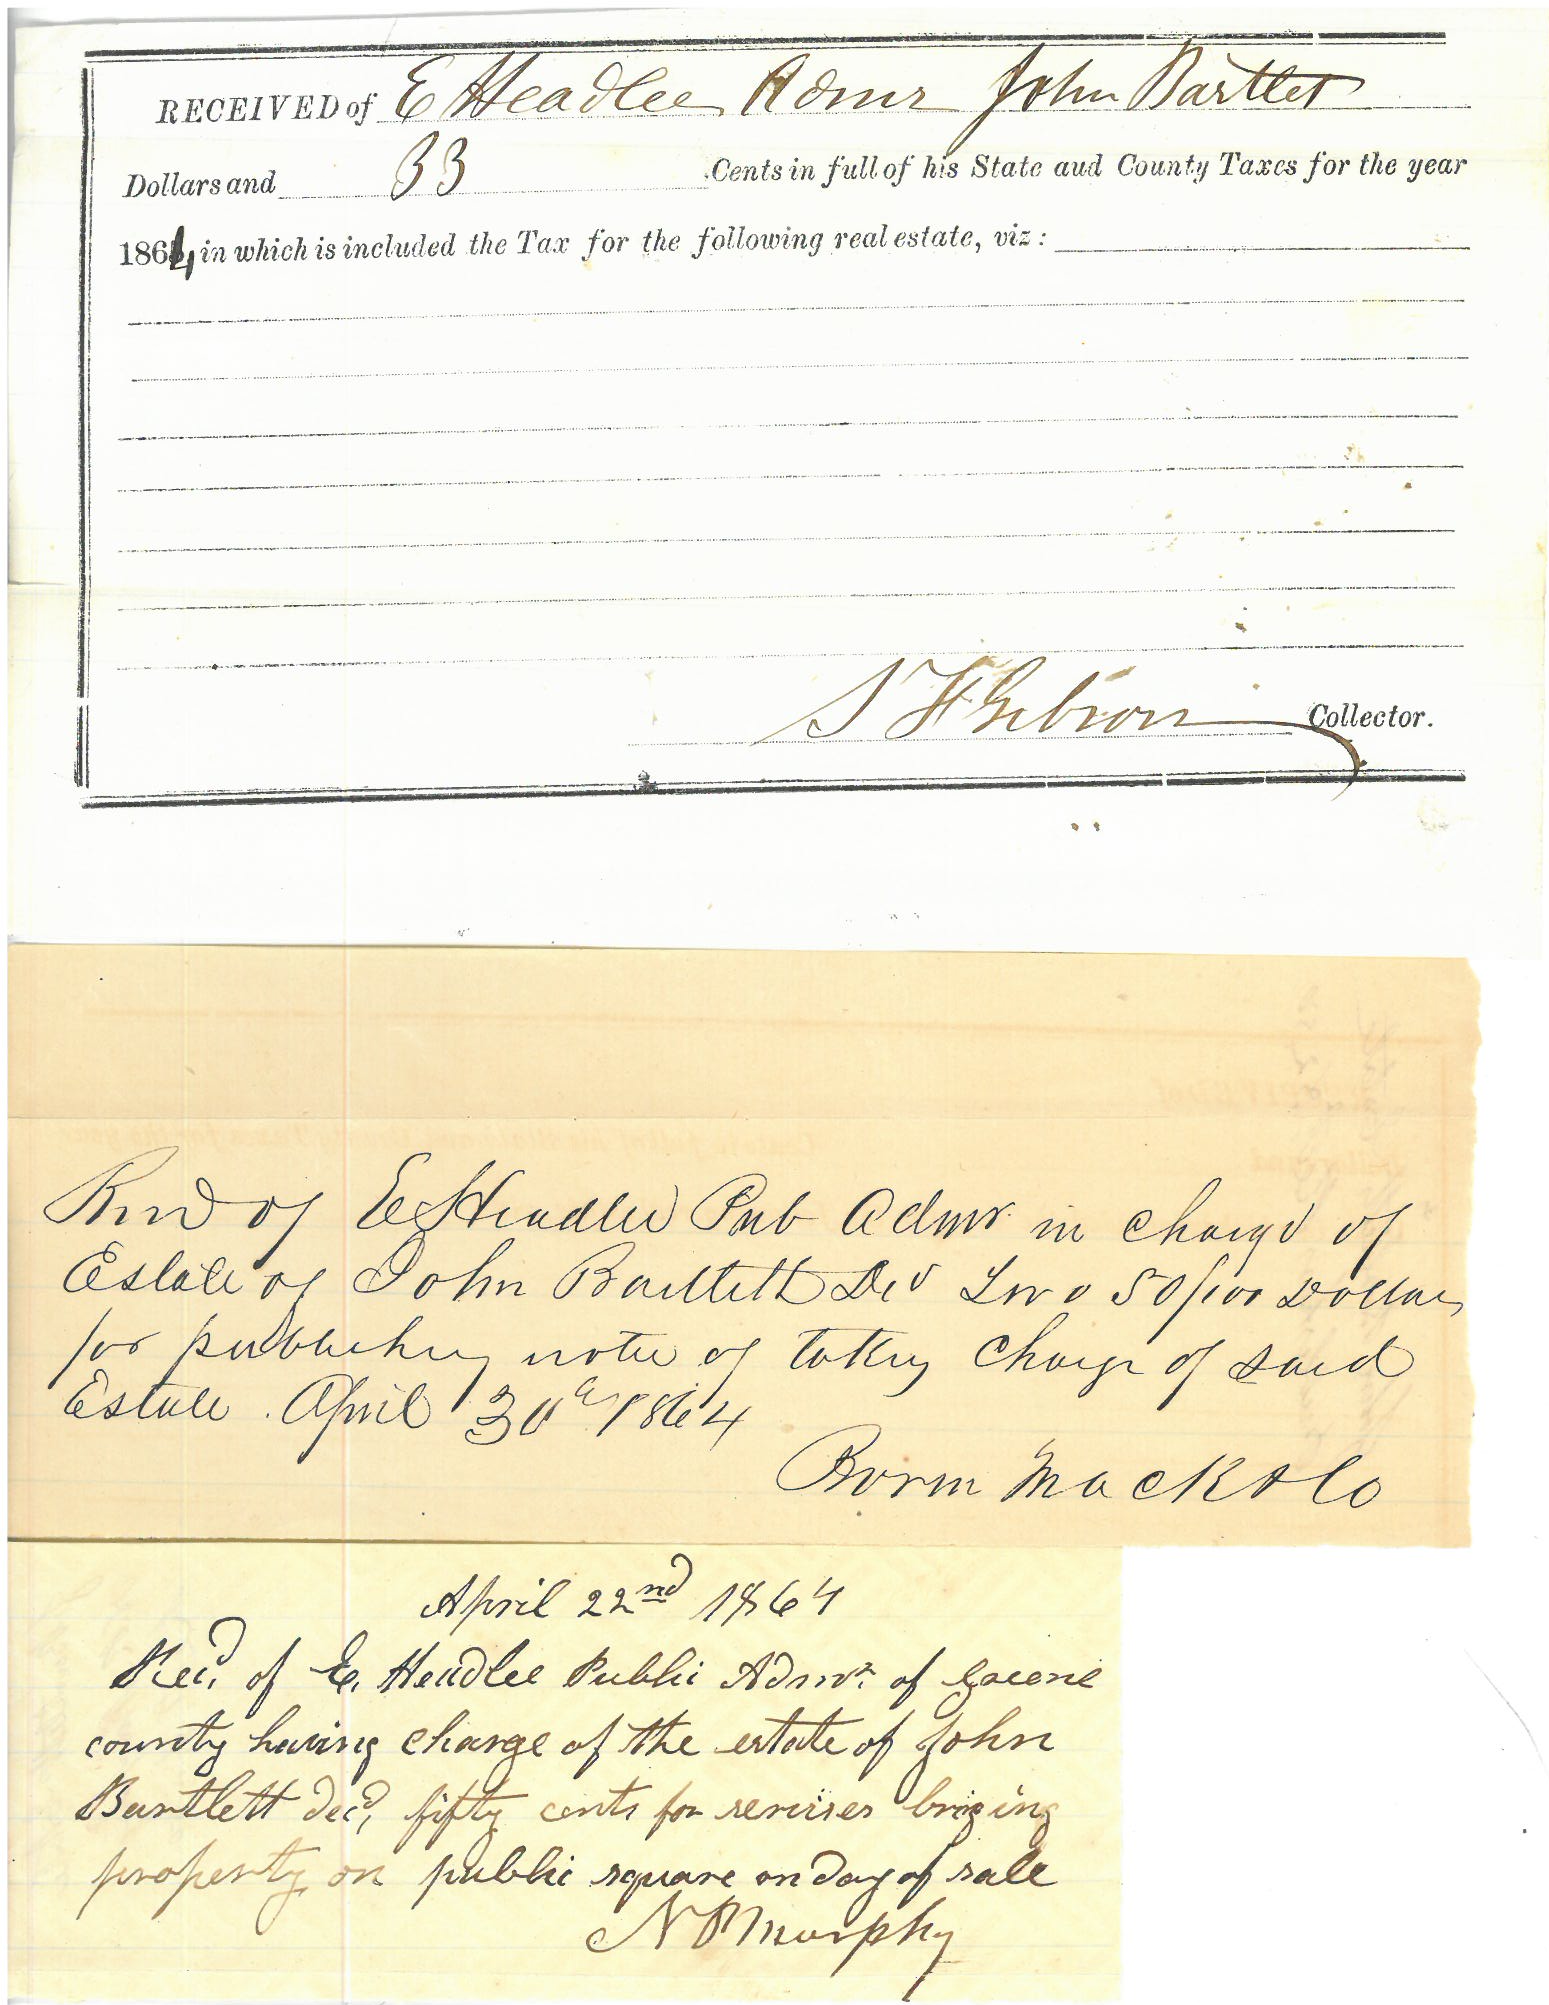 RECEIVED of E Headlee Admr John Bartlet
Dollars and 33 Cents in full of his State and County Taxes for the year
1864, in which is included the Tax for the following real estate, viz:
S H Gibson Collector.
Recd of E Headlee Pub Admr in charge of
Estate of John Bartlett Decd Two 50/100 Dollars
for publishing notice of taking charge of said
Estate. April 30th 1864
Mack & Co
April 22nd 1864
Recd. of E. Headlee Public Admr. of Greene
county having charge of the estate of John
Bartlett decd, fifty cents for servises bringing
property on public square on day of sale
N P Murphy